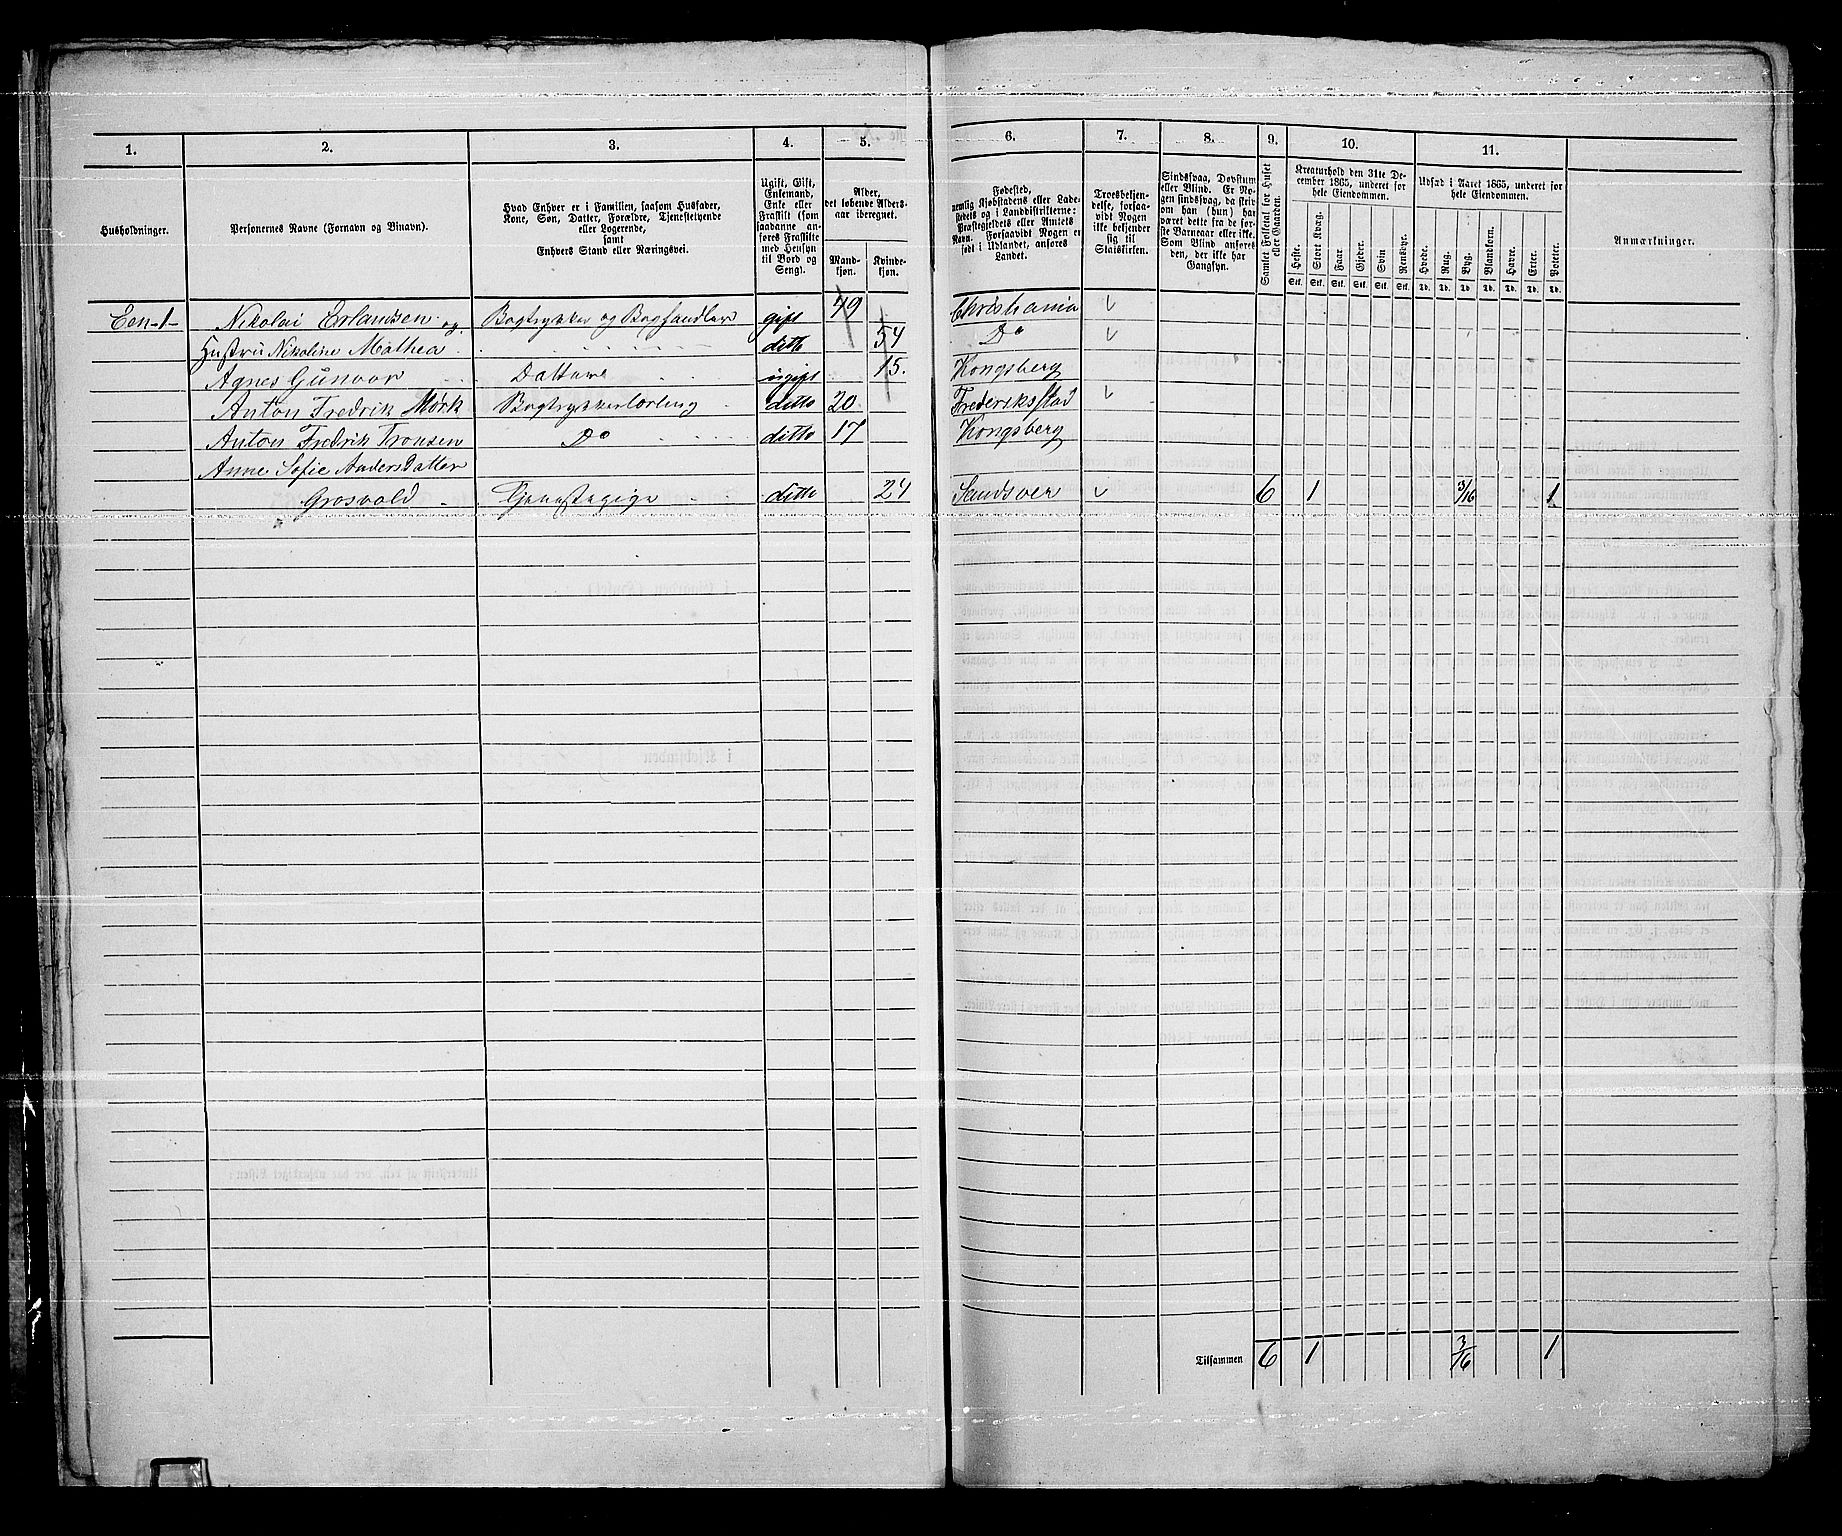 1. 2. 3. 4. 5. 6. 7. 8. 9. 10. 11.
Husholdninger.
Personernes Navne (Fornavn og Binavn).
Hvad Enhver er i Familien, saasom Husfader,
Kone, Søn, Datter, Forældre, Tjenestetyende
eller Logerende,
samt
Enhvers Stand eller Næringsvei.
Ugift, Gift,
Enkemand,
Enke eller
Fraskilt (som
saadanne an-
føres Fraskilte
med Hensyn
til Bord og
Seng).
Alder,
det løbende Alders-
aar iberegnet.
Mand-
kjøn.
Kvinde-
kjøn.
Fødested,
nemlig Kjøbstadens eller Lade-
stedets og i Landdistrikterne:
Præstegjeldets eller Amtets
Navn. Forsaavidt Nogen er
født i Udlandet, anføres
Landet.
Troesbekjen-
delse, forsaa-
vidt Nogen
ikke bekjender
sig til
Statskirken.
Sindssvag, Døvstum
eller Blind. Er No-
gen sindssvag, da skriv
om han (hun) har
været dette fra de før-
ste Barneaar eller ikke.
Som Blind anføres
den, der ikke har
Gangsyn.
Samlet Folketal for Huset
eller Gaarden.
Kreaturhold den 31te De-
cember 1865, underet for
hele Eiendommen.
Heste. Stort Kvæg. Faar. Gjeder. Svin. Rensdyr.
Stk. Stk. Stk. Stk. Stk. Stk.
Udsæd i Aaret 1865, underet for
hele Eiendommen.
Hvede. Rug. Byg. Blandkorn. Havre. Erter. Poteter.
Td. Td. Td. Td. Td. Td. Td.
Anmærkninger.
Een -1- Nikolai Erlandsen og Bogtrykker og Boghandler gift 49 Christiania
Hustru Nikoline Mathea ditto 54 Do
Agnes Gunvor Dattere ugift 15. Kongsberg
Anton Fredrik Mørk Bogtrykkerlærling ditto 20 Frederiksstad
Anton Fredrik Tronsen Do ditto 17 Kongsberg
Anne Sofie AndersDatter
Grosvold Tjenestepige ditto 24 Sandsver 6 1 3/16 1
Tilsammen 6 1 3/16 1